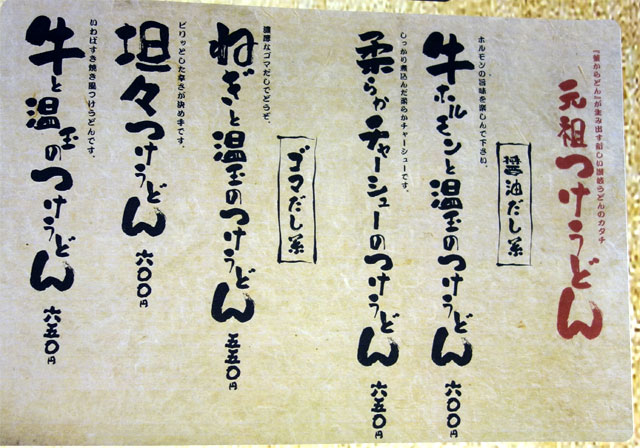 『釜からどん』が生み出す新しい讃岐うどんのカタチ
元祖つけうどん
醤油だし系
ホルモンの旨味を楽しんで下さい。
牛ホルモンと温玉のつけうどん 六〇〇円
しっかり煮込んだ柔らかチャーシューです。
柔らかチャーシューのつけうどん 六五〇円
ゴマだし系
濃厚なゴマだしでどうぞ。
ねぎと温玉のつけうどん 五五〇円
ピリッとした辛さが決め手です。
坦々つけうどん 六〇〇円
いわばすき焼き風つけうどんです。
牛と温玉のつけうどん 六五〇円